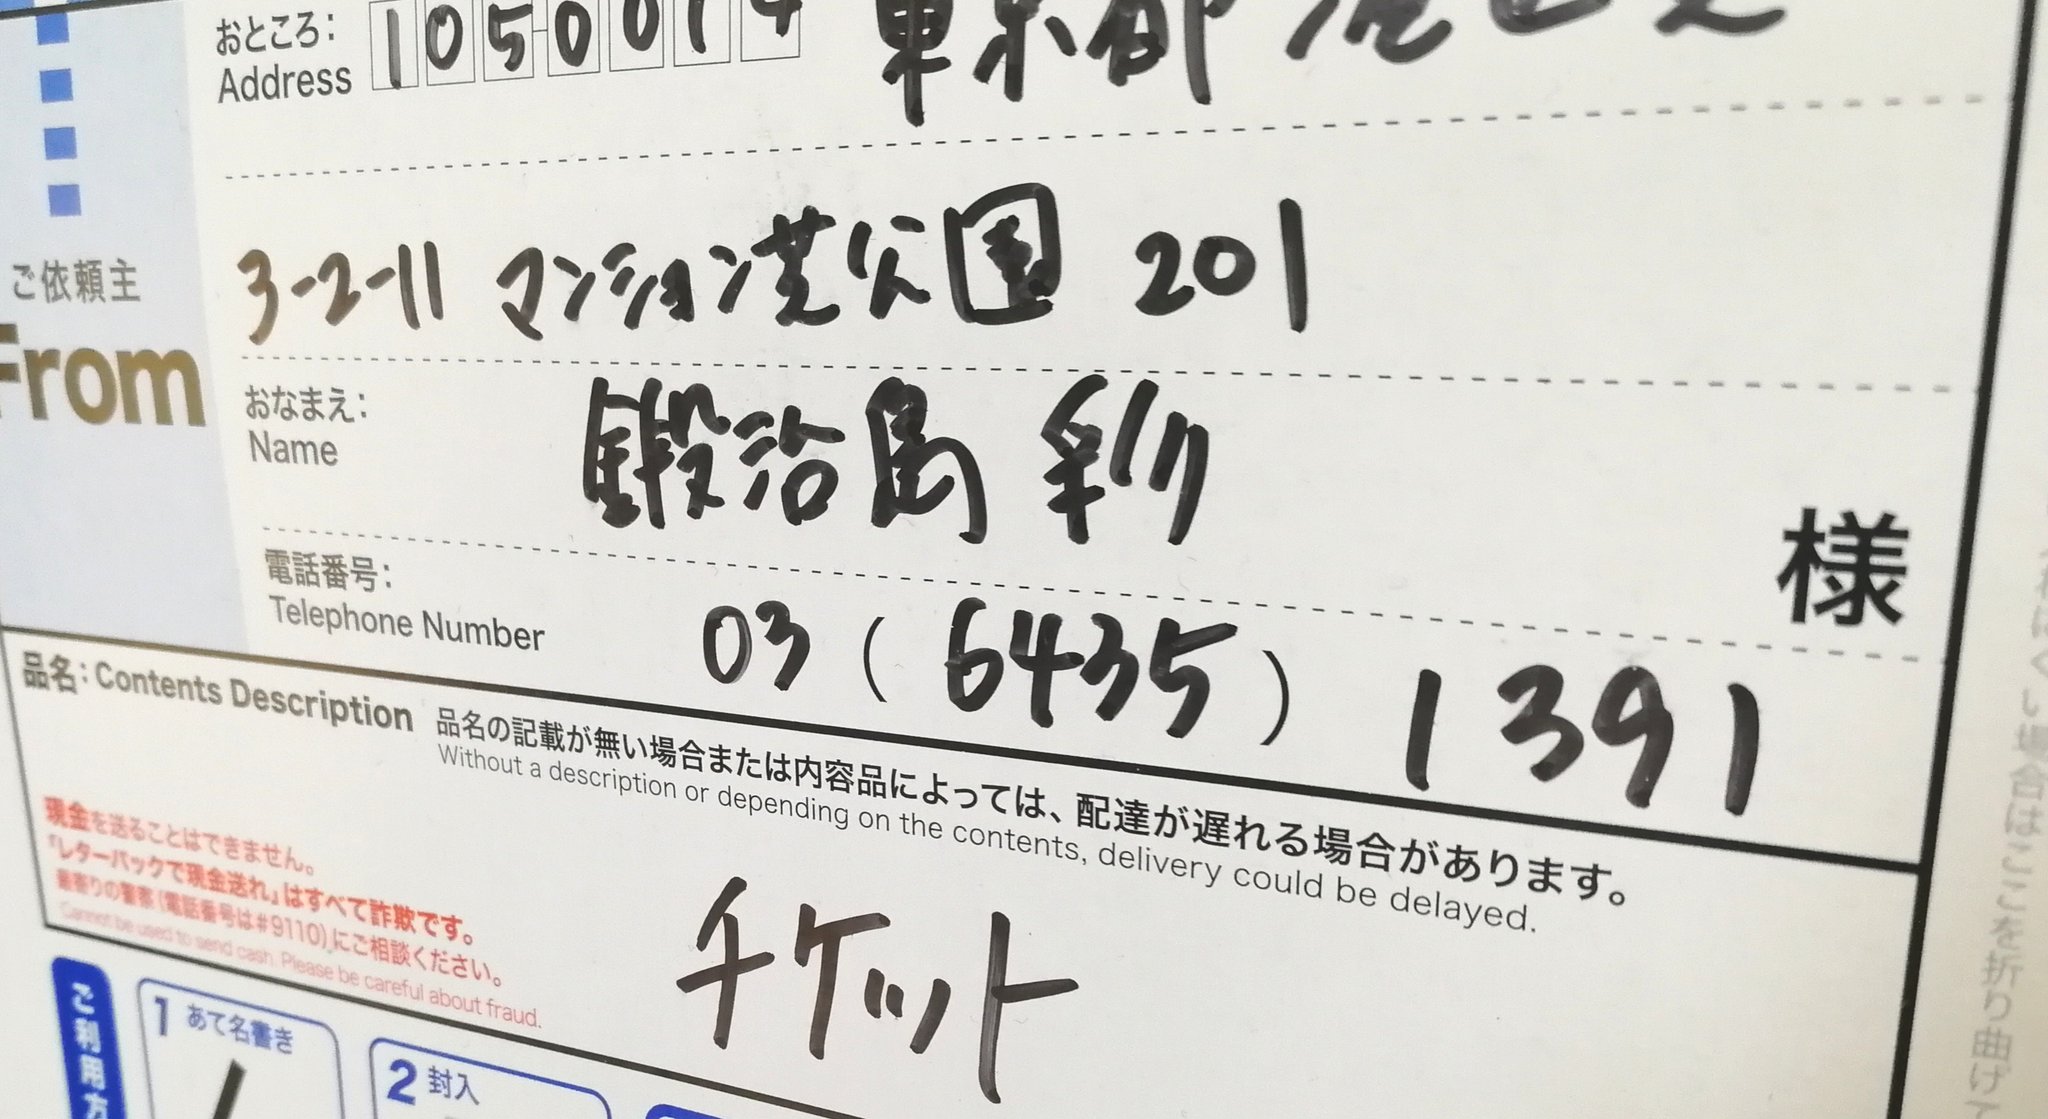 おところ:
Address
1050014 東京都港区芝
3-2-11 マンション芝公園 201
ご依頼主
From
おなまえ:
Name
鍛治島 彩
様
電話番号:
Telephone Number
03 ( 6435 ) 1391
品名: Contents Description
品名の記載が無い場合または内容品によっては、配達が遅れる場合があります。
Without a description or depending on the contents, delivery could be delayed.
現金を送ることはできません。
「レターパックで現金送れ」はすべて詐欺です。
最寄りの警察(電話番号は#9110)にご相談ください。
Cannot be used to send cash. Please be careful about fraud.
チケット
ご利用方
1 あて名書き
2 封入
場合はここを折り曲げ